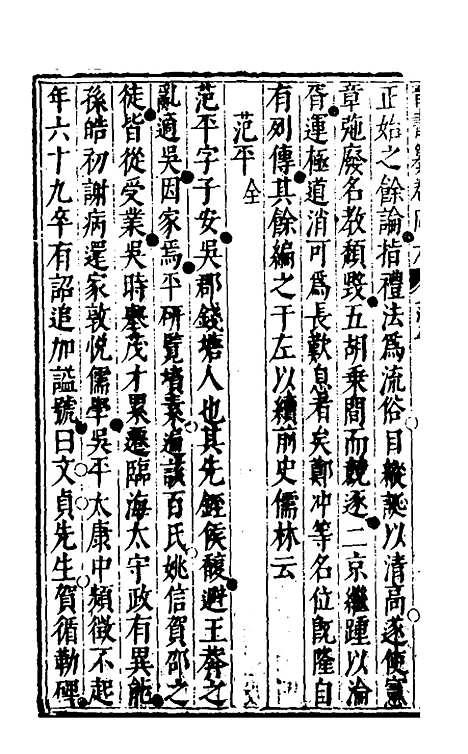 正始之餘論指禮法爲流俗目縱誕以清高遂使憲
章弛廢名教頹毀五胡乗間而競逐二京繼踵以淪
胥運極道消可爲長歎息者矣鄭冲等名位既隆自
有列傳其餘編之于左以續前史儒林云
范平 全
范平字子安吳郡錢塘人也其先銍侯馥避王莽之
亂適吳因家焉平研覧墳素遍該百氏姚信賀邵之
徒皆從受業吳時舉茂才累遷臨海太守政有異能
孫皓初謝病還家敦悦儒學吳平太康中頻徵不起
年六十九卒有詔追加謚號曰文貞先生賀循勒碑